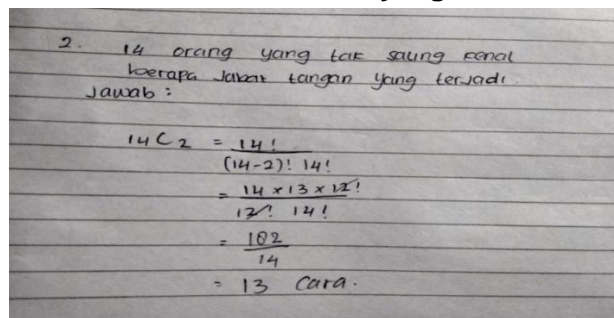 2. 14 orang yang tak saling kenal
berapa Jabat tangan yang terjadi
Jawab :
14C2 = 14!
(14-2)! 14!
= 14 x 13 x 12!
12! 14!
= 182
14
= 13 Cara.